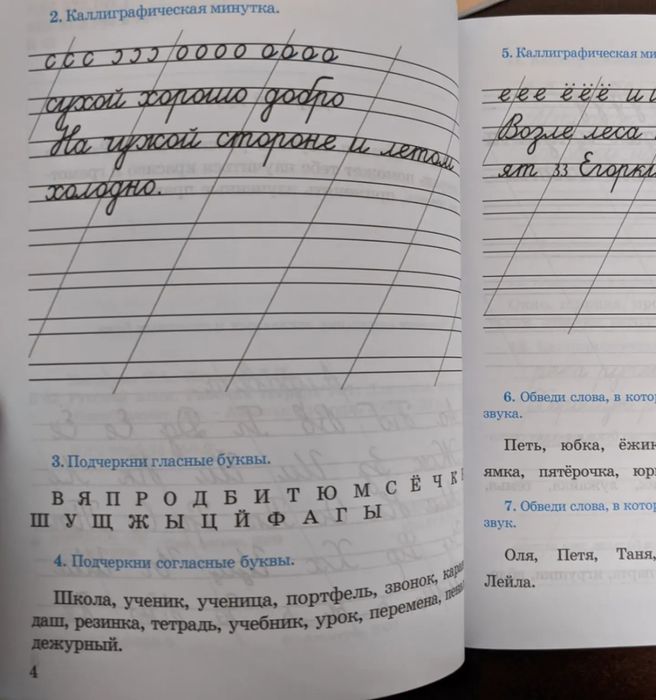 2. Каллиграфическая минутка.
с с с ͻ ͻ ͻ о о о о а а а а
сухой хорошо добро
На чужой стороне и летом
холодно.
3. Подчеркни гласные буквы.
В Я П Р О Д Б И Т Ю М С Ё Ч К
Ш У Щ Ж Ы Ц Й Ф А Г Ы
4. Подчеркни согласные буквы.
Школа, ученик, ученица, портфель, звонок, каран-
даш, резинка, тетрадь, учебник, урок, перемена,
дежурный.
4
5. Каллиграфическая ми
е е е ё ё ё и и
Возле леса
ят 33 Егорки
6. Обведи слова, в кото
звука.
Петь, юбка, ёжик
ямка, пятёрочка, юр
7. Обведи слова, в кото
звук.
Оля, Петя, Таня,
Лейла.